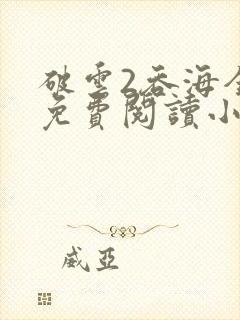 破雲2吞海全
免費閱讀小
威亞